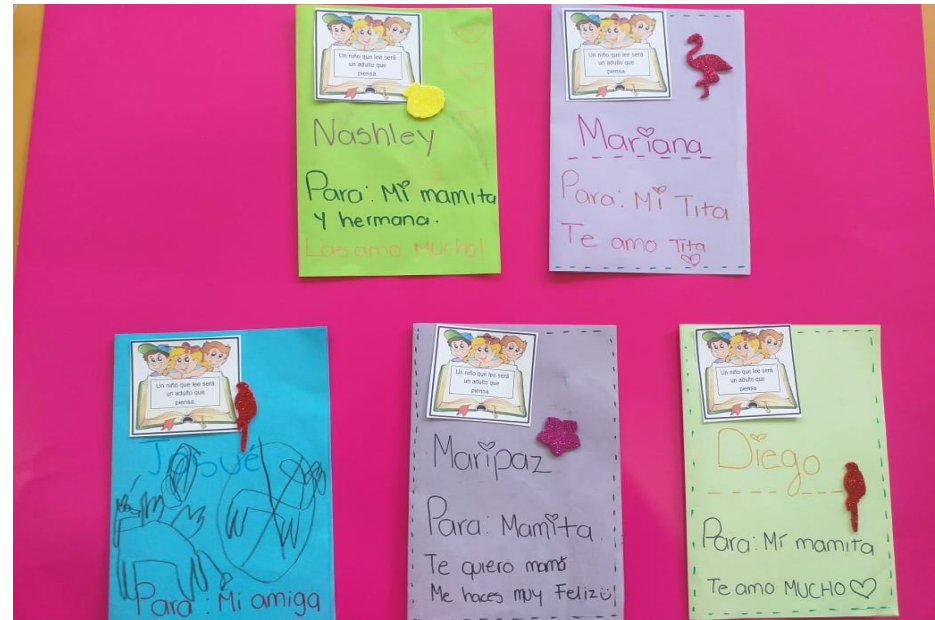 Un niño que lee será
un adulto que
piensa.
Nashley
Para: Mi mamita
y hermana.
Las amo Mucho!
Un niño que lee será
un adulto que
piensa.
Mariana
Para: Mi Tita
Te amo Tita
Un niño que lee será
un adulto que
piensa.
Josué
Para: Mi amiga
Un niño que lee será
un adulto que
piensa.
Maripaz
Para: Mamita
Te quiero mamá
Me haces muy Feliz!
Un niño que lee será
un adulto que
piensa.
Diego
Para: Mi mamita
Te amo MUCHO